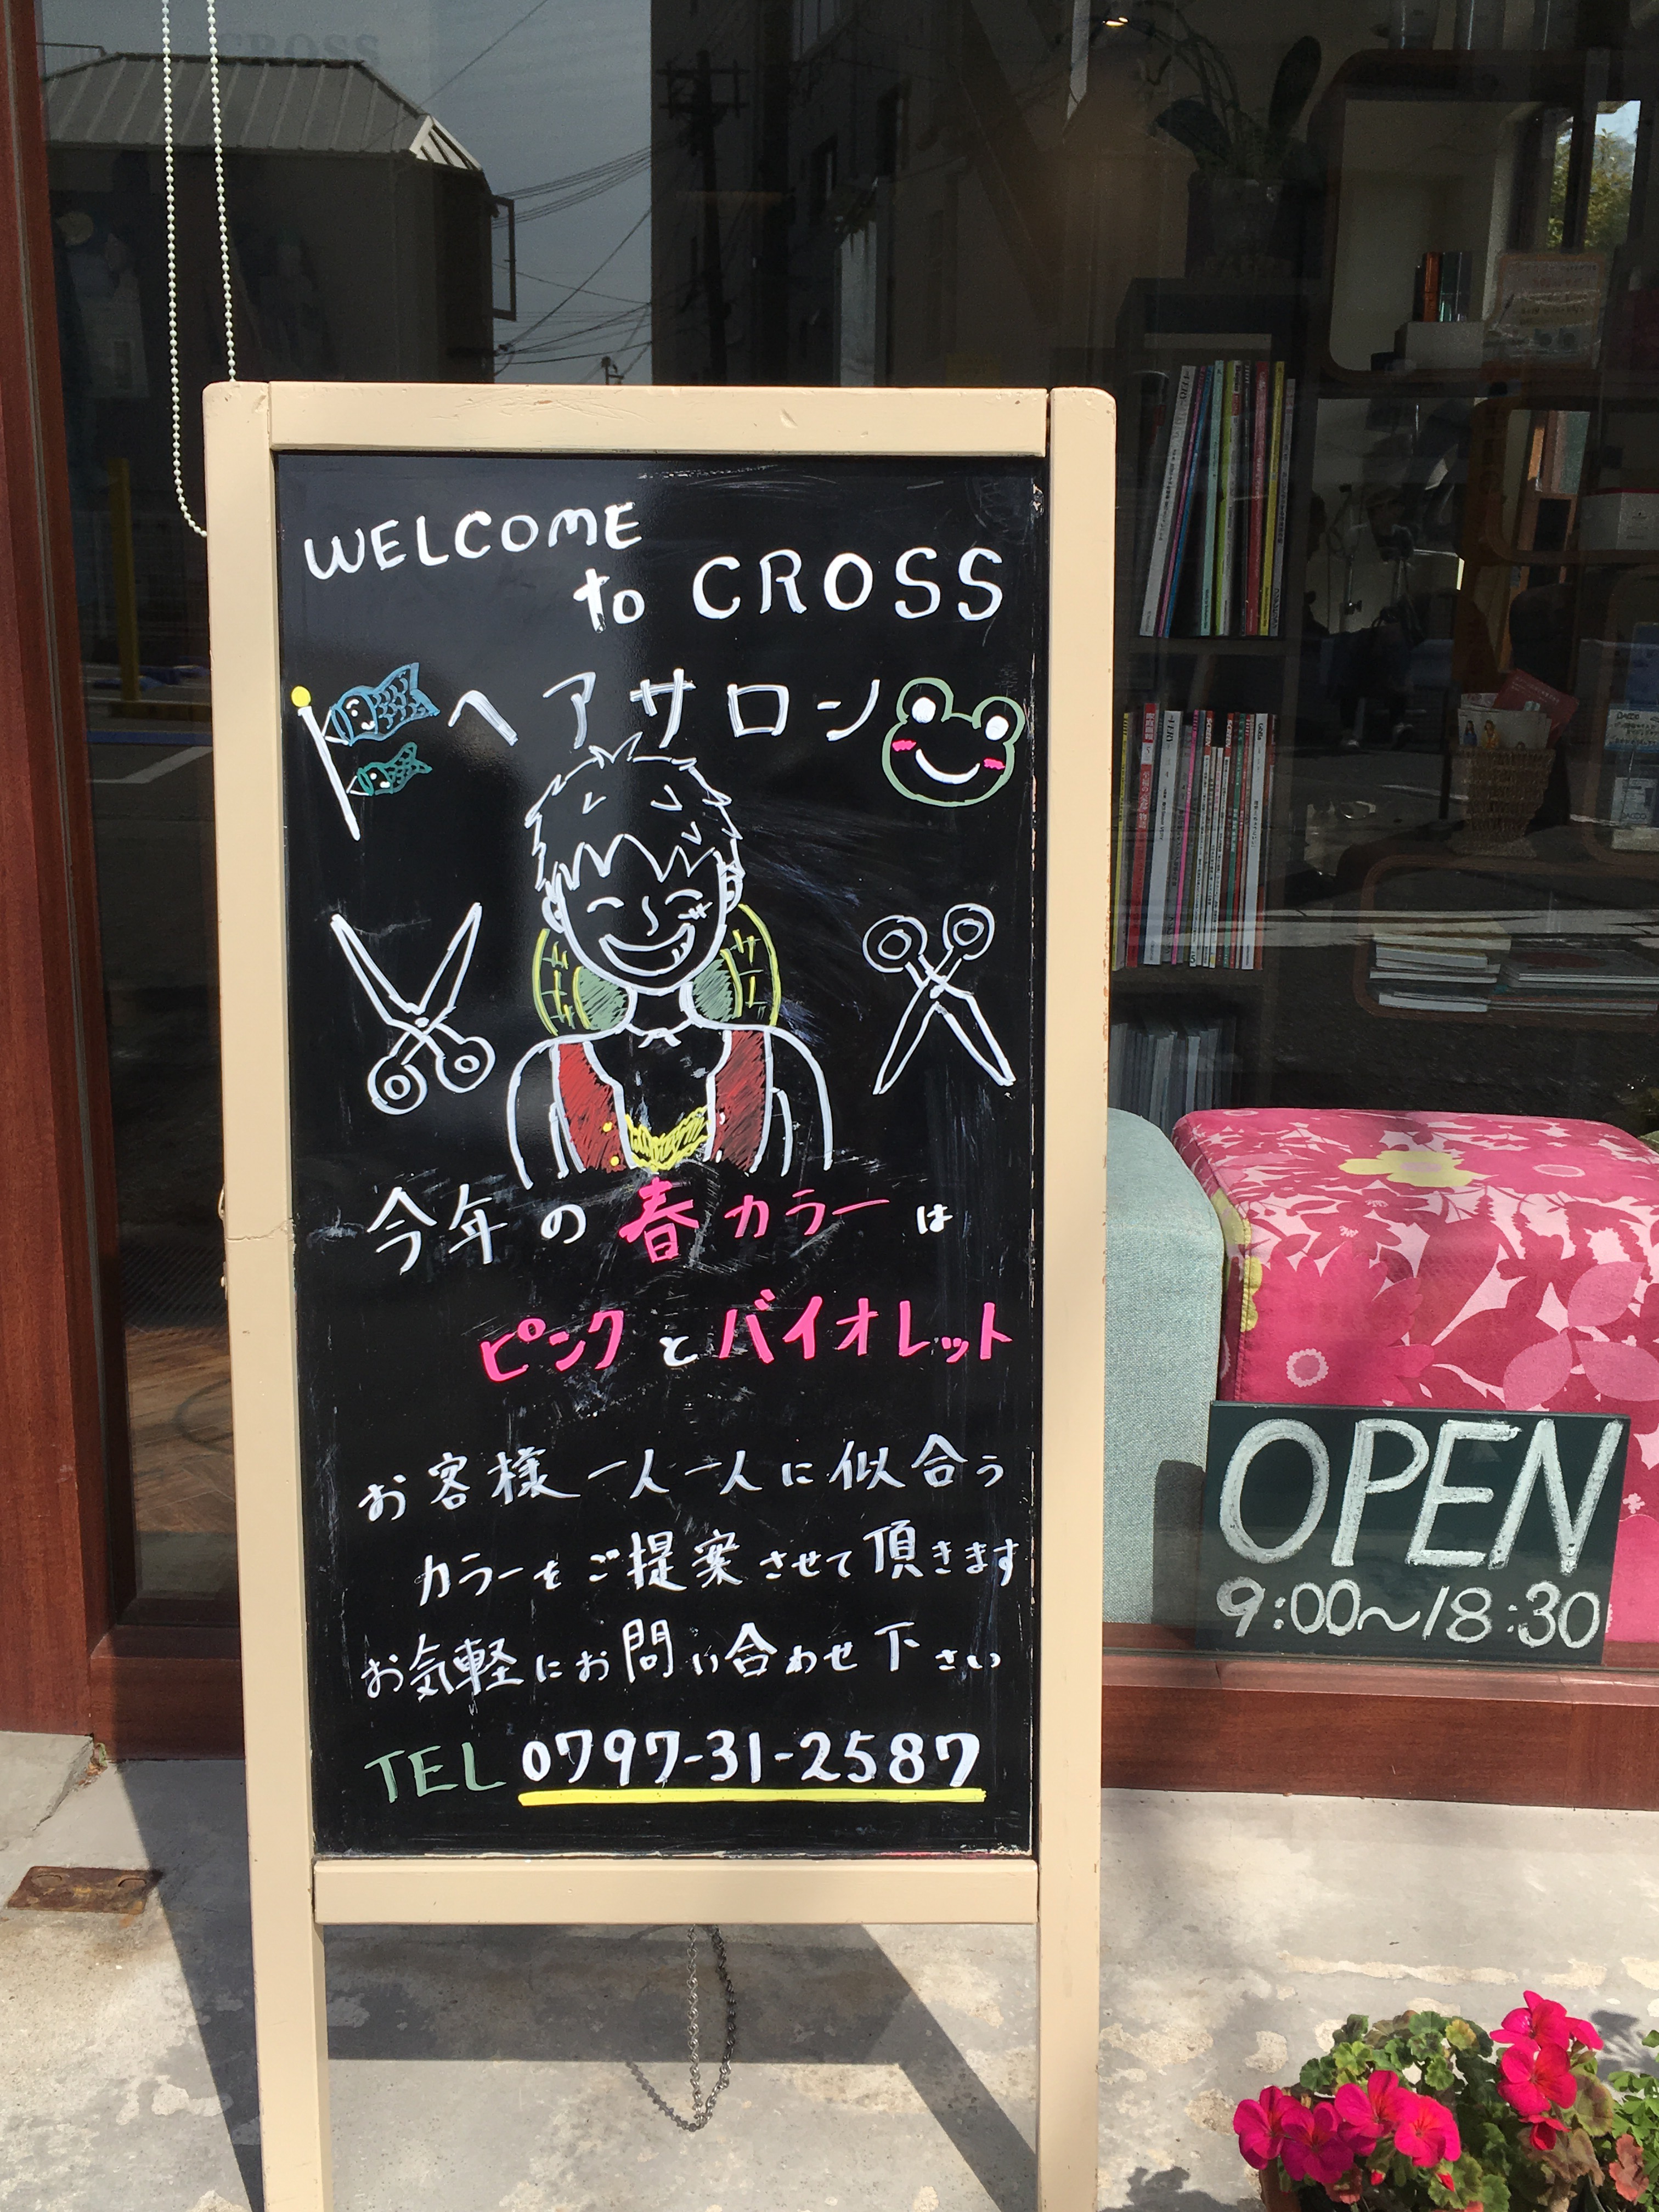 CROSS
WELCOME
to CROSS
ヘアサロン
今年の春カラーは
ピンクとバイオレット
お客様一人一人に似合う
カラーをご提案させて頂きます
お気軽にお問い合わせ下さい
TEL 0797-31-2587
OPEN
9:00～18:30